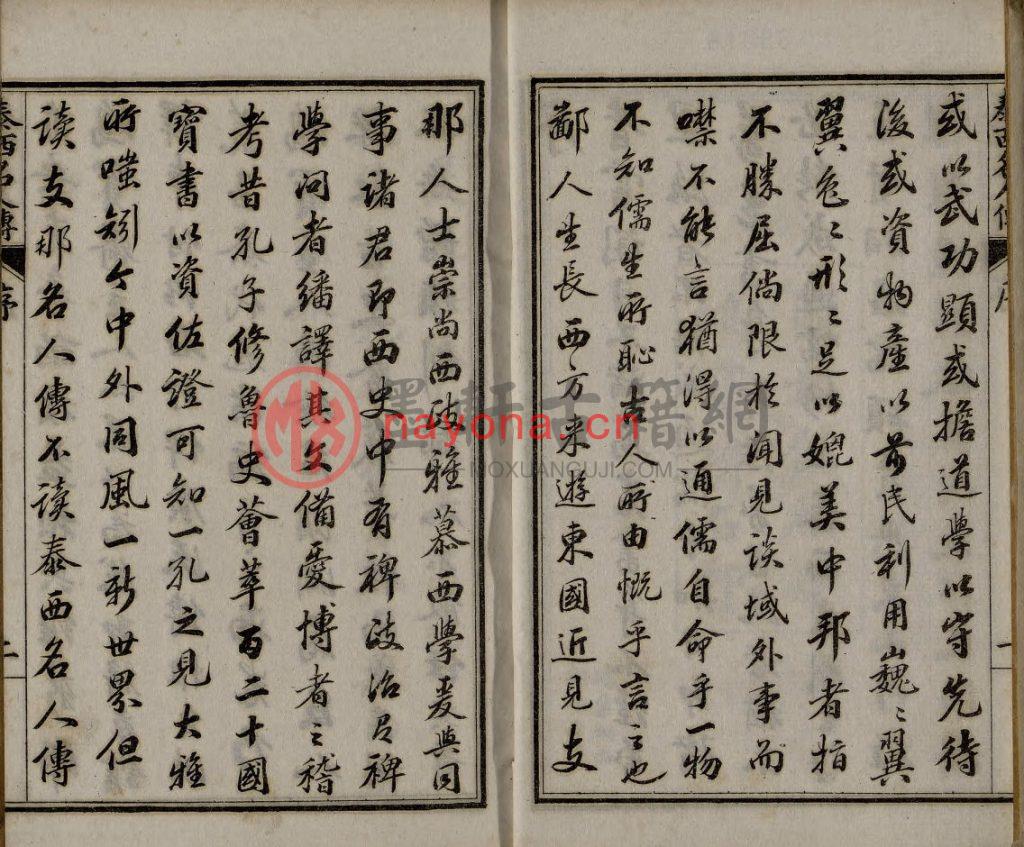 或以武功顯或擔道學以守先待
後或資物產以前民利用巍〻翼
翼色〻形〻足以媲美中邦者指
不勝屈倘限於聞見談域外事而
噤不能言猶得以通儒自命乎一物
不知儒生所恥古人所由慨乎言之也
鄙人生長西方来遊東國近見支
那人士崇尚西政雅慕西學爰與同
事諸君即西史中有裨政治有裨
學問者繙譯其文備愛博者之稽
考昔孔子修魯史薈萃百二十國
寶書以資佐證可知一孔之見大雅
所嗤矧今中外同風一新世界但
读支那名人傳不读泰西名人傳
泰西名人傳
序
一
泰西名人傳
序
二
墨軒古籍網
nayona.cn
MOXUANGUJI.COM